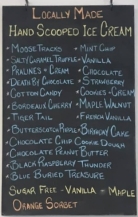 LOCALLY MADE
HAND SCOOPED ICE CREAM
• MOOSE TRACKS • MINT CHIP
• SALTY CARAMEL TRUFFLE • VANILLA
• PRALINES + CREAM • CHOCOLATE
• DEATH BY CHOCOLATE • STRAWBERRY
• COTTON CANDY • COOKIES + CREAM
• BORDEAUX CHERRY • MAPLE WALNUT
• TIGER TAIL • FRENCH VANILLA
• BUTTERSCOTCH RIPPLE • BIRTHDAY CAKE
• CHOCOLATE CHIP COOKIE DOUGH
• CHOCOLATE PEANUT BUTTER
• BLACK RASPBERRY THUNDER
• BLUE BURIED TREASURE
SUGAR FREE - VANILLA MAPLE
ORANGE SORBET